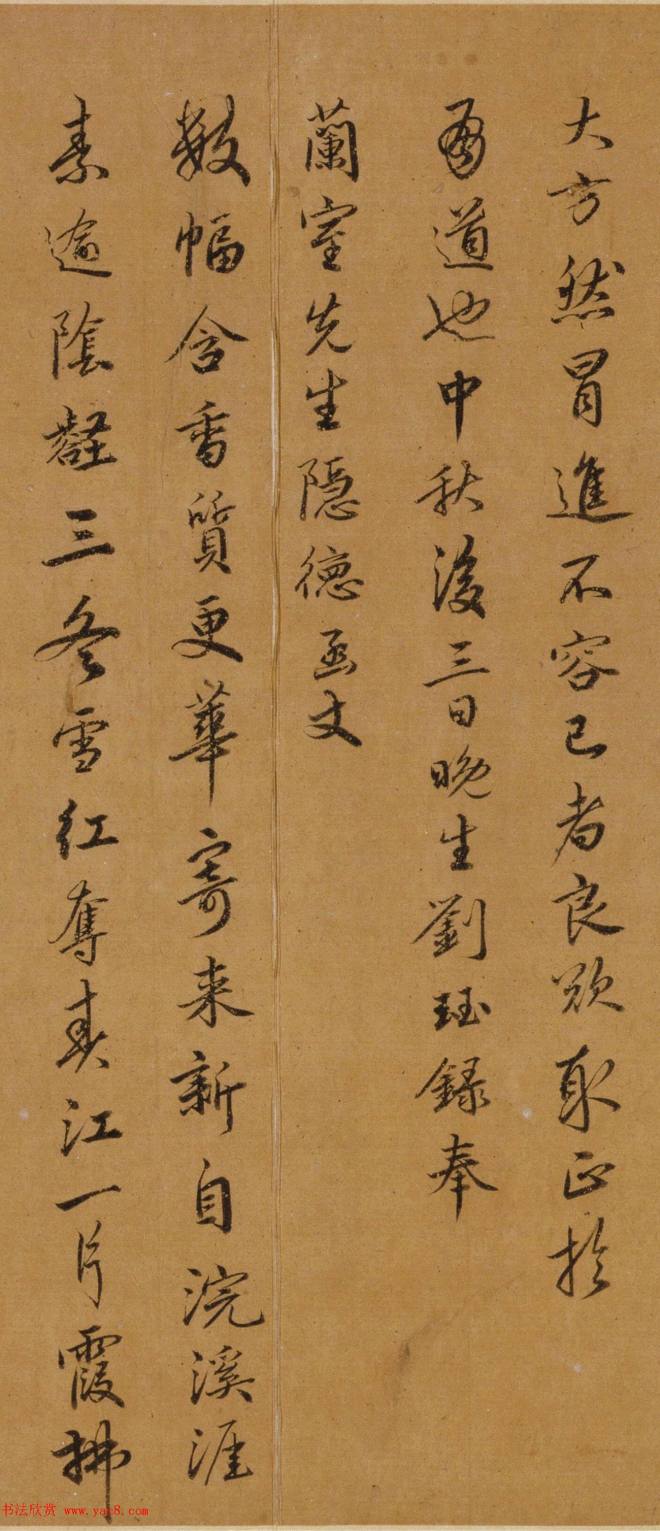 大方然冒進不容已者良欲取正於
有道也中秋後三日晚生劉珏錄奉
蘭室先生隱德函丈
數幅含香質更華寄來新自浣溪涯
素逾陰壑三冬雪紅奪春江一片霞拂
书法欣赏 www.yac8.com